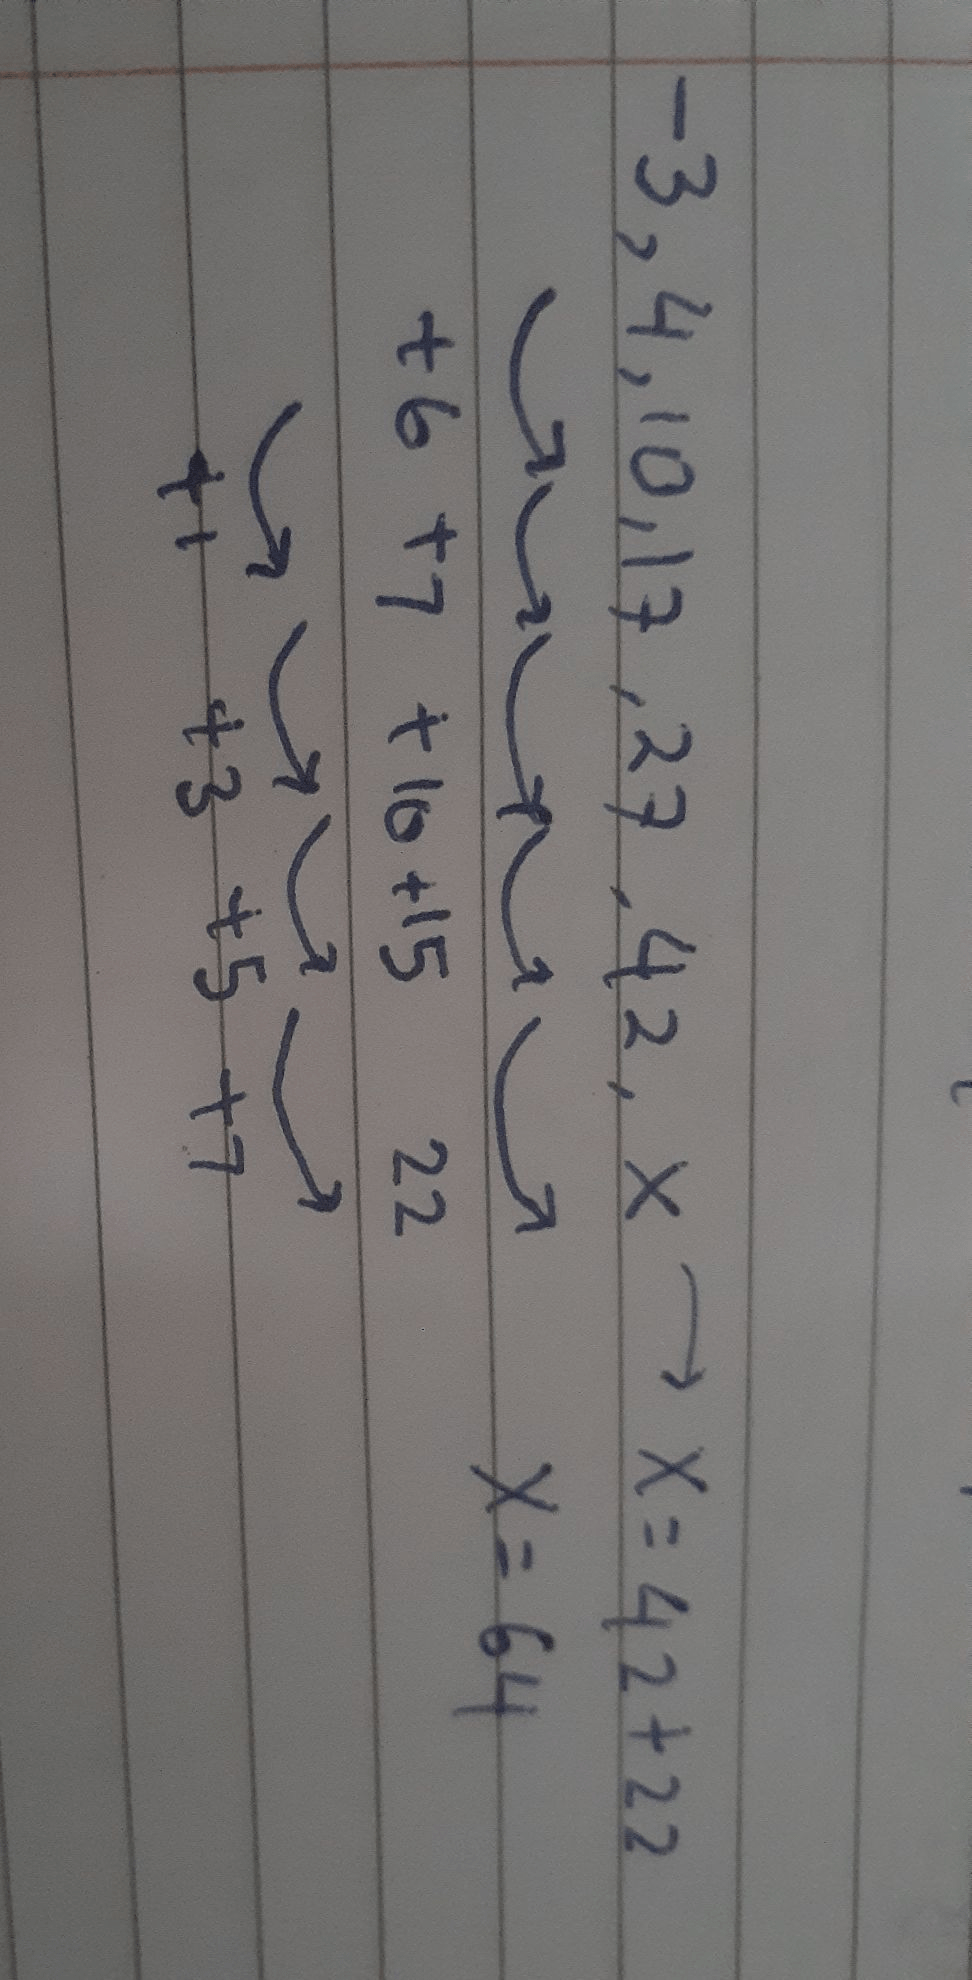 -3, 4, 10, 17, 27, 42, x → x = 42 + 22
+6 +7 +10 +15 22 x = 64
+1 +3 +5 +7